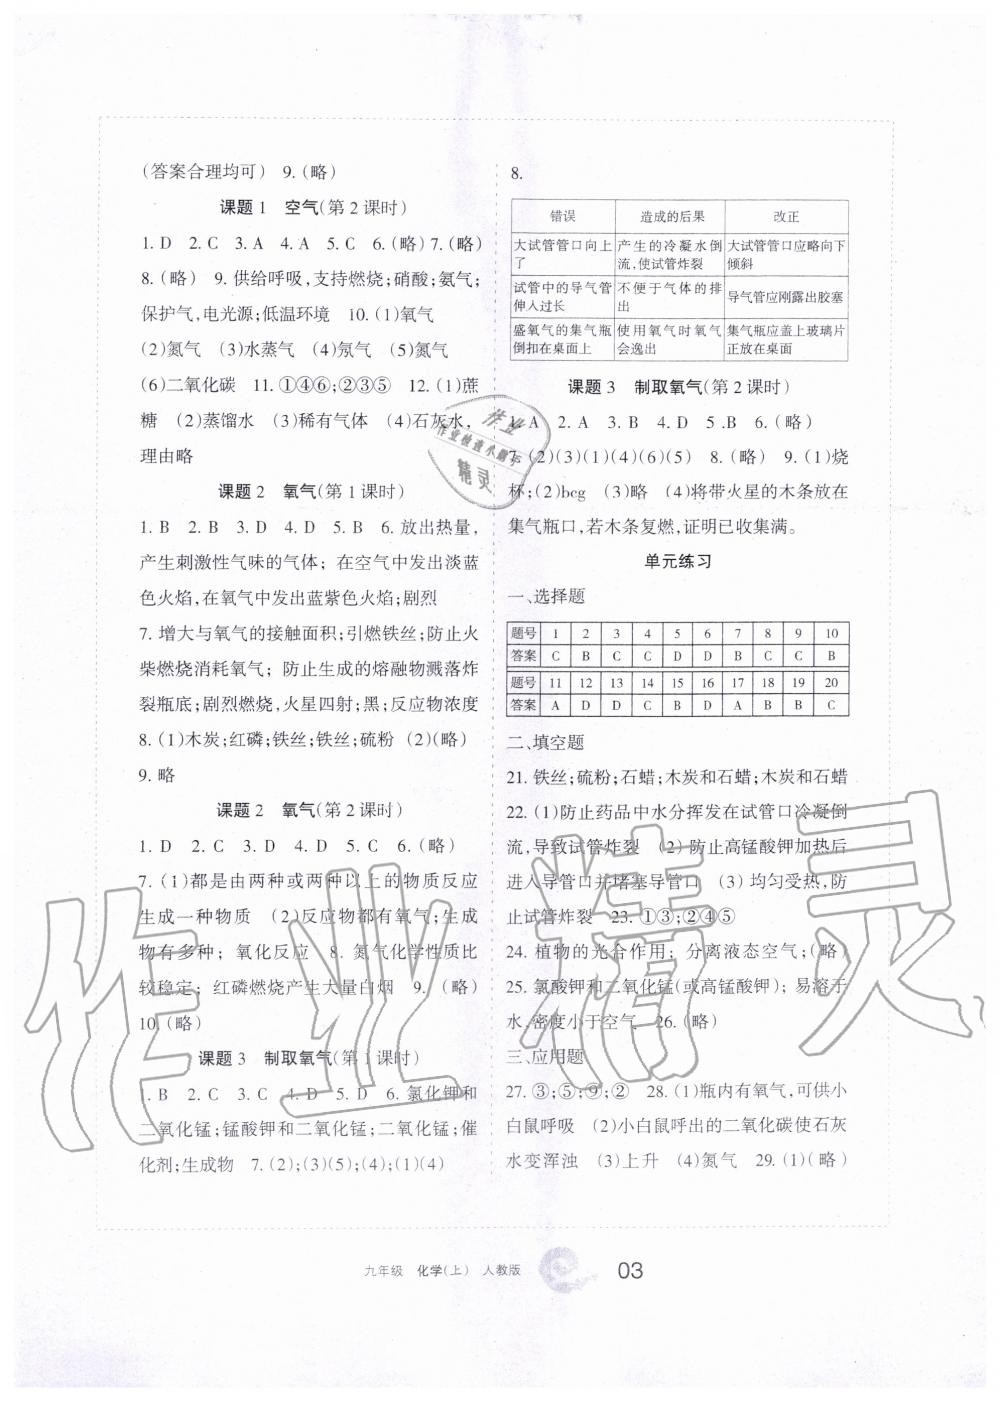 (答案合理均可) 9.(略)
课题1 空气(第2课时)
1. D 2. C 3. A 4. A 5. C 6.(略)7.(略)
8.(略) 9. 供给呼吸,支持燃烧;硝酸;氨气;
保护气,电光源;低温环境 10.(1)氧气
(2)氮气 (3)水蒸气 (4)氖气 (5)氮气
(6)二氧化碳 11. ①④⑥;②③⑤ 12.(1)蔗
糖 (2)蒸馏水 (3)稀有气体 (4)石灰水,
理由略
课题2 氧气(第1课时)
1. B 2. B 3. D 4. D 5. B 6. 放出热量,
产生刺激性气味的气体; 在空气中发出淡蓝
色火焰,在氧气中发出蓝紫色火焰;剧烈
7. 增大与氧气的接触面积;引燃铁丝;防止火
柴燃烧消耗氧气; 防止生成的熔融物溅落炸
裂瓶底;剧烈燃烧,火星四射;黑;反应物浓度
8.(1)木炭;红磷;铁丝;铁丝;硫粉 (2)(略)
9. 略
课题2 氧气(第2课时)
1. D 2. C 3. D 4. C 5. C 6.(略)
7.(1)都是由两种或两种以上的物质反应
生成一种物质 (2)反应物都有氧气;生成
物有多种; 氧化反应 8. 氮气化学性质比
较稳定; 红磷燃烧产生大量白烟 9. (略)
10.(略)
课题3 制取氧气(第1课时)
1. B 2. C 3. C 4. D 5. D 6. 氯化钾和
二氧化锰;锰酸钾和二氧化锰;二氧化锰;催
化剂;生成物 7.(2);(3)(5);(4);(1)(4)
8.
错误 造成的后果 改正
大试管管口向上 产生的冷凝水倒 大试管管口应略向下
了 流,使试管炸裂 倾斜
试管中的导气管 不便于气体的排 导气管应刚露出胶塞
伸入过长 出
盛氧气的集气瓶 使用氧气时氧气 集气瓶应盖上玻璃片
倒扣在桌面上 会逸出 正放在桌面
课题3 制取氧气(第2课时)
1. A 2. A 3. B 4. D 5 .B 6.(略)
7.(2)(3)(1)(4)(6)(5) 8.(略) 9.(1)烧
杯;(2)bcg (3)略 (4)将带火星的木条放在
集气瓶口,若木条复燃,证明已收集满。
单元练习
一、选择题
题号 1 2 3 4 5 6 7 8 9 10
答案 C B C C D D B C C B
题号 11 12 13 14 15 16 17 18 19 20
答案 A D D C B D A B B C
二、填空题
21. 铁丝;硫粉;石蜡;木炭和石蜡;木炭和石蜡
22.(1)防止药品中水分挥发在试管口冷凝倒
流,导致试管炸裂 (2) 防止高锰酸钾加热后
进入导管口并堵塞导管口 (3) 均匀受热,防
止试管炸裂 23. ①③;②④⑤
24. 植物的光合作用; 分离液态空气;(略)
25. 氯酸钾和二氧化锰(或高锰酸钾); 易溶于
水,密度小于空气 26.(略)
三、应用题
27. ③;⑤;⑨;② 28.(1)瓶内有氧气,可供小
白鼠呼吸 (2)小白鼠呼出的二氧化碳使石灰
水变浑浊 (3)上升 (4)氮气 29.(1)(略)
九年级 化学(上) 人教版 03
作业精灵